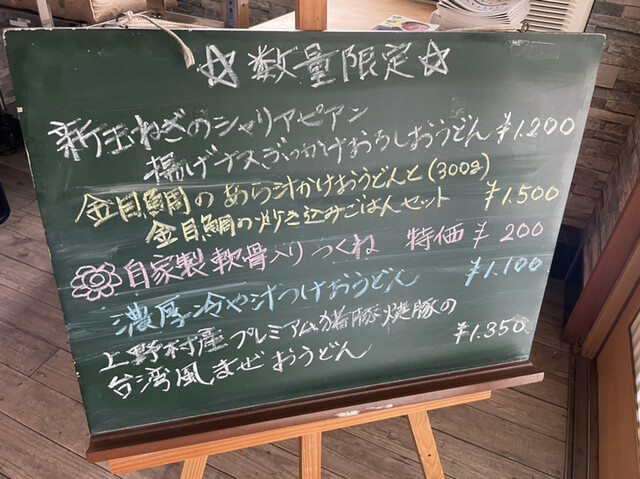 ☆数量限定☆
新玉ねぎのシャリアピアン
揚げナスぶっかけおろしおうどん ¥1.200
金目鯛のあら汁かけおうどんと(300g)
金目鯛の炊き込みごはんセット ¥1.500
自家製軟骨入りつくね 特価 ¥200
濃厚冷や汁つけおうどん ¥1.100
上野村産プレミアム猪豚焼豚の
台湾風まぜおうどん ¥1.350